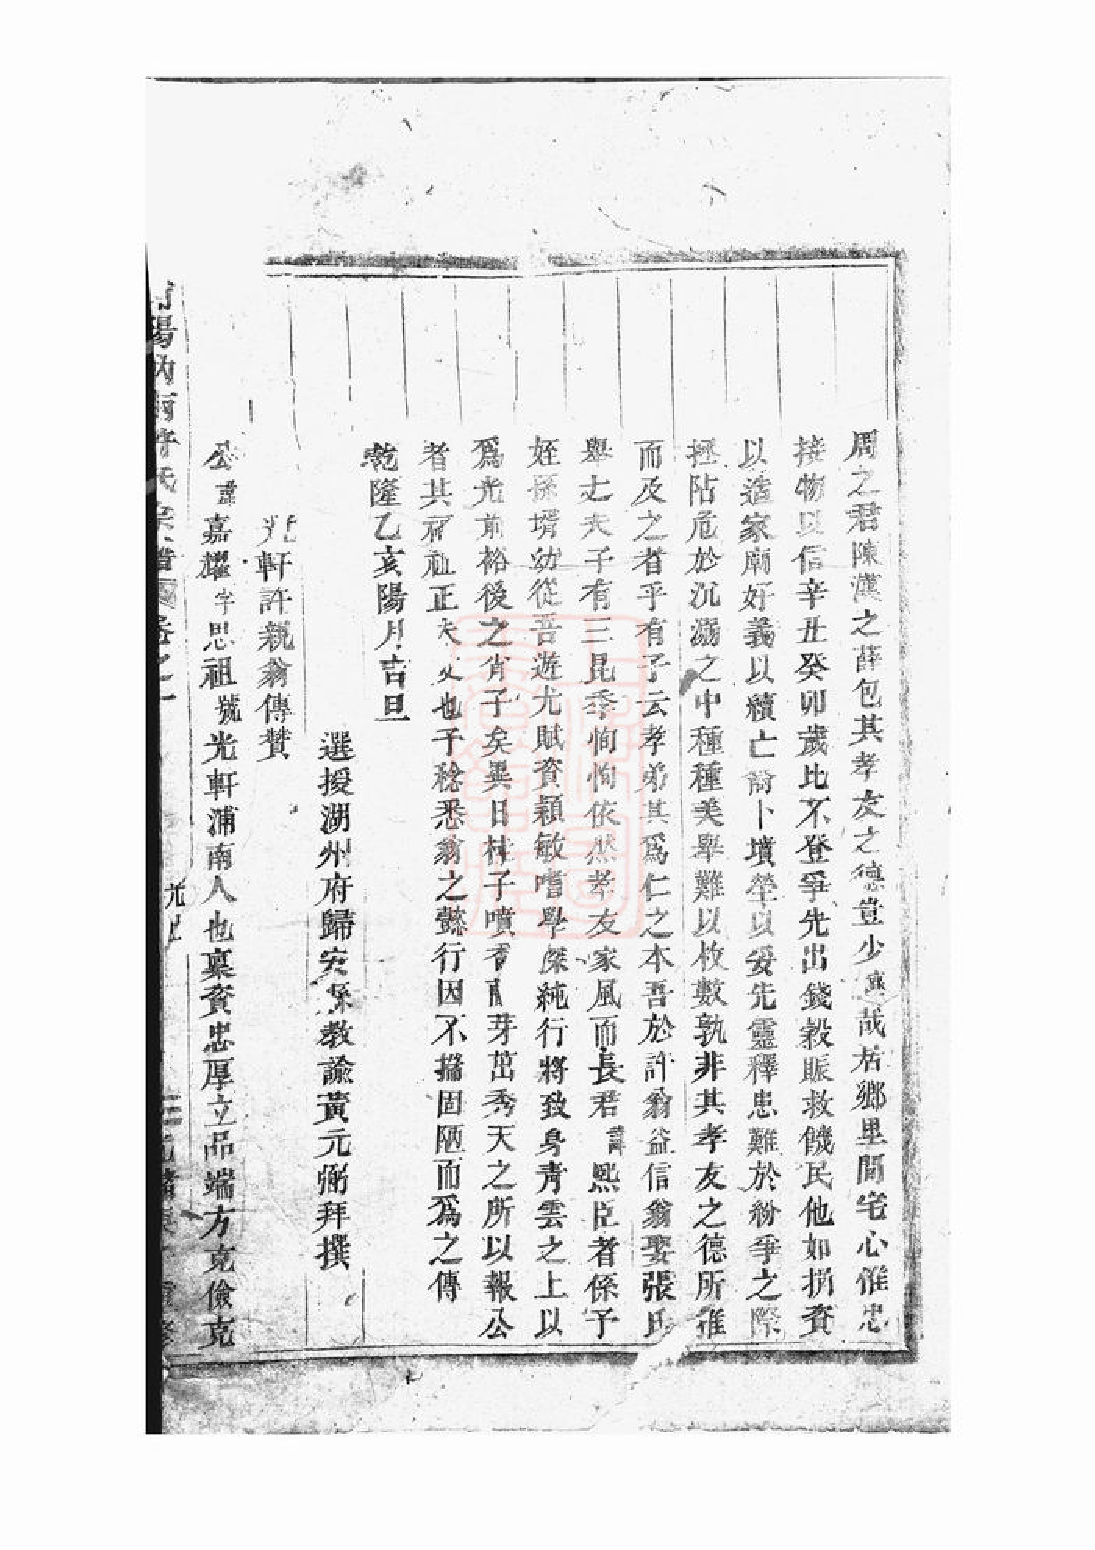 周之君陳漢之薛包其孝友之德豈少遜哉居鄉里間宅心惟忠
接物以信辛丑癸卯歲比不登爭先出錢穀賑救饑民他如捐資
以造家廟好義以續亡裔卜墳塋以妥先靈釋患難於紛爭之際
拯阽危於沉溺之中種種美舉難以枚數孰非其孝友之德所推
而及之者乎有子云孝弟其爲仁之本吾於許翁益信翁娶張氏
舉丈夫子有三昆季恂恂依然孝友家風而長君諱熙臣者係予
姪孫壻幼從吾遊尤賦資穎敏嗜學深純行將致身青雲之上以
爲光前裕後之肖子矣異日桂子噴香蘭芽茁秀天之所以報公
者其祖正未艾也予稔悉翁之懿行因不揣固陋而爲之傳
乾隆乙亥陽月吉旦
選授湖州府歸安縣教諭黃元弼拜撰
光軒許親翁傳贊
公諱嘉耀字思祖號光軒浦南人也稟資忠厚立品端方克儉克
陽 許氏宗譜 卷之一